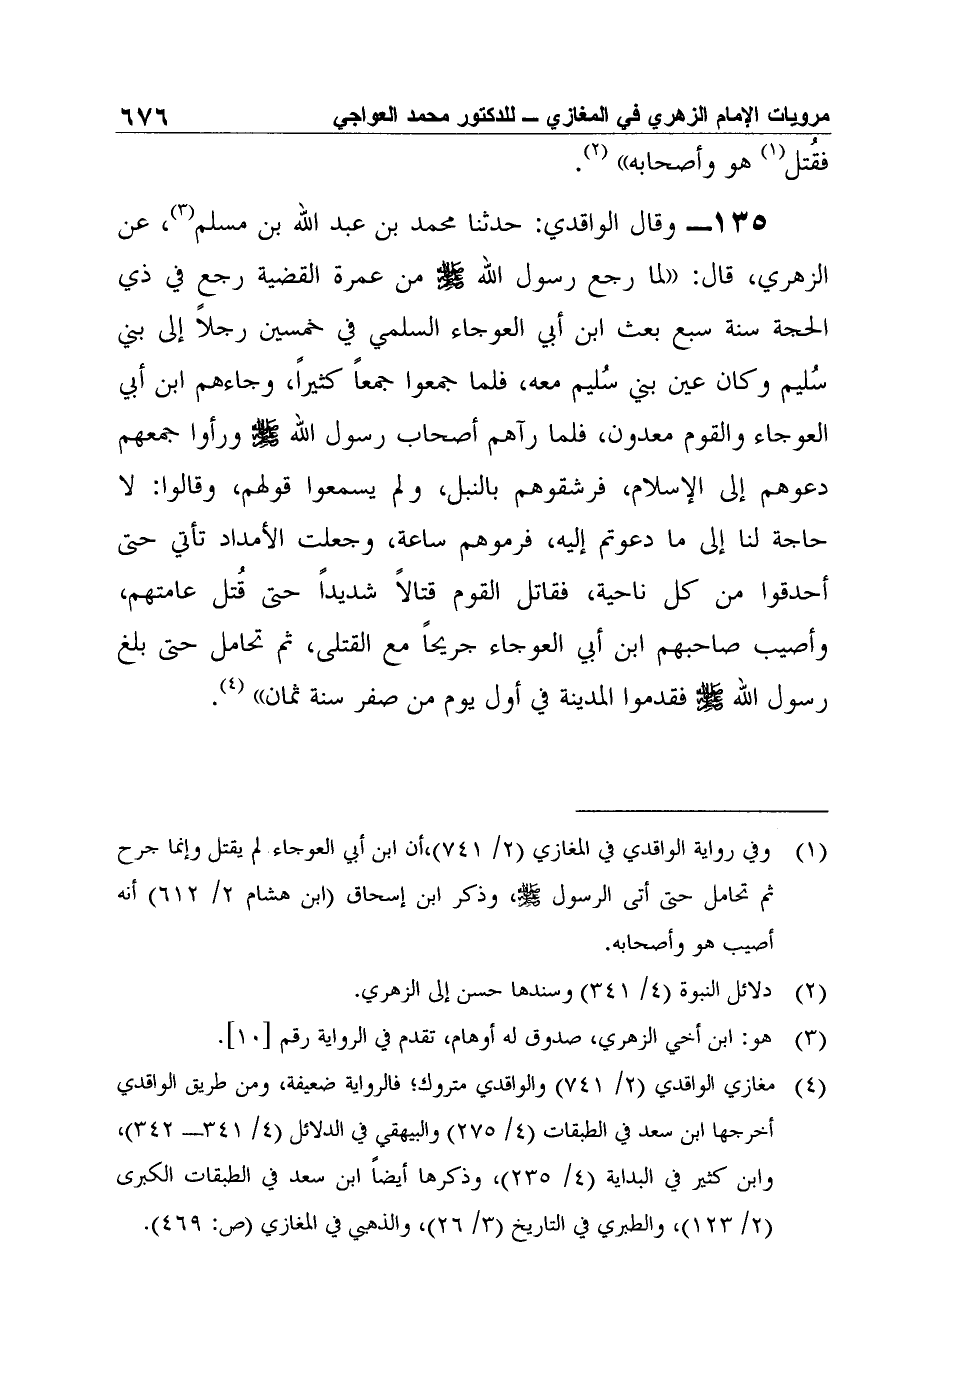 مرويات الإمام الزهري في المغازي ـ للدكتور محمد العواجي ٦٧٦
فقُتل(١) هو وأصحابه» (٢).
١٣٥ـ وقال الواقدي: حدثنا محمد بن عبد الله بن مسلم(٣)، عن
الزهري، قال: «لما رجع رسول الله ﷺ من عمرة القضية رجع في ذي
الحجة سنة سبع بعث ابن أبي العوجاء السلمي في خمسين رجلاً إلى بني
سُليم وكان عين بني سُليم معه، فلما جمعوا جمعاً كثيراً، وجاءهم ابن أبي
العوجاء والقوم معدون، فلما رآهم أصحاب رسول الله ﷺ ورأوا جمعهم
دعوهم إلى الإسلام، فرشقوهم بالنبل، ولم يسمعوا قولهم، وقالوا: لا
حاجة لنا إلى ما دعوتم إليه، فرموهم ساعة، وجعلت الأمداد تأتي حتى
أحدقوا من كل ناحية، فقاتل القوم قتالاً شديداً حتى قُتل عامتهم،
وأصيب صاحبهم ابن أبي العوجاء جريحاً مع القتلى، ثم تحامل حتى بلغ
رسول الله ﷺ فقدموا المدينة في أول يوم من صفر سنة ثمان» (٤).
(١) وفي رواية الواقدي في المغازي (٢/ ٧٤١)،أن ابن أبي العوجاء لم يقتل وإنما جرح
ثم تحامل حتى أتى الرسول ﷺ، وذكر ابن إسحاق (ابن هشام ٢/ ٦١٢) أنه
أصيب هو وأصحابه.
(٢) دلائل النبوة (٤/ ٣٤١) وسندها حسن إلى الزهري.
(٣) هو: ابن أخي الزهري، صدوق له أوهام، تقدم في الرواية رقم [١٠].
(٤) مغازي الواقدي (٢/ ٧٤١) والواقدي متروك؛ فالرواية ضعيفة، ومن طريق الواقدي
أخرجها ابن سعد في الطبقات (٤/ ٢٧٥) والبيهقي في الدلائل (٤/ ٣٤١ـ ٣٤٢)،
وابن كثير في البداية (٤/ ٢٣٥)، وذكرها أيضاً ابن سعد في الطبقات الكبرى
(٢/ ١٢٣)، والطبري في التاريخ (٣/ ٢٦)، والذهبي في المغازي (ص: ٤٦٩).